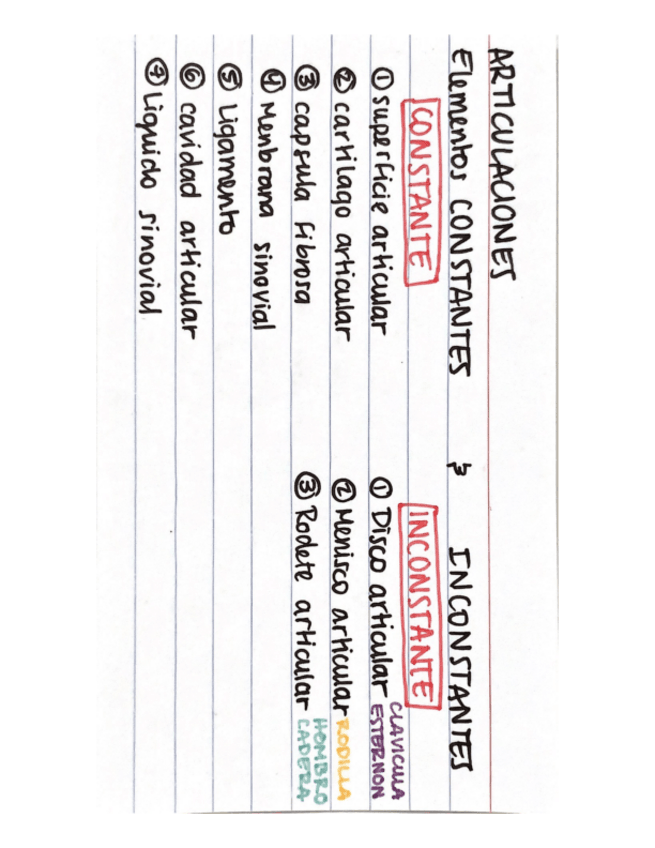 ARTICULACIONES
Elementos CONSTANTES & INCONSTANTES
CONSTANTE
① superficie articular
② cartilago articular
③ capsula fibrosa
④ Menbrana sinovial
⑤ Ligamento
⑥ cavidad articular
⑦ Liquido sinovial
INCONSTANTE
① Disco articular CLAVICULA ESTERNON
② Menisco articular RODILLA
③ Rodete articular HOMBRO CADERA